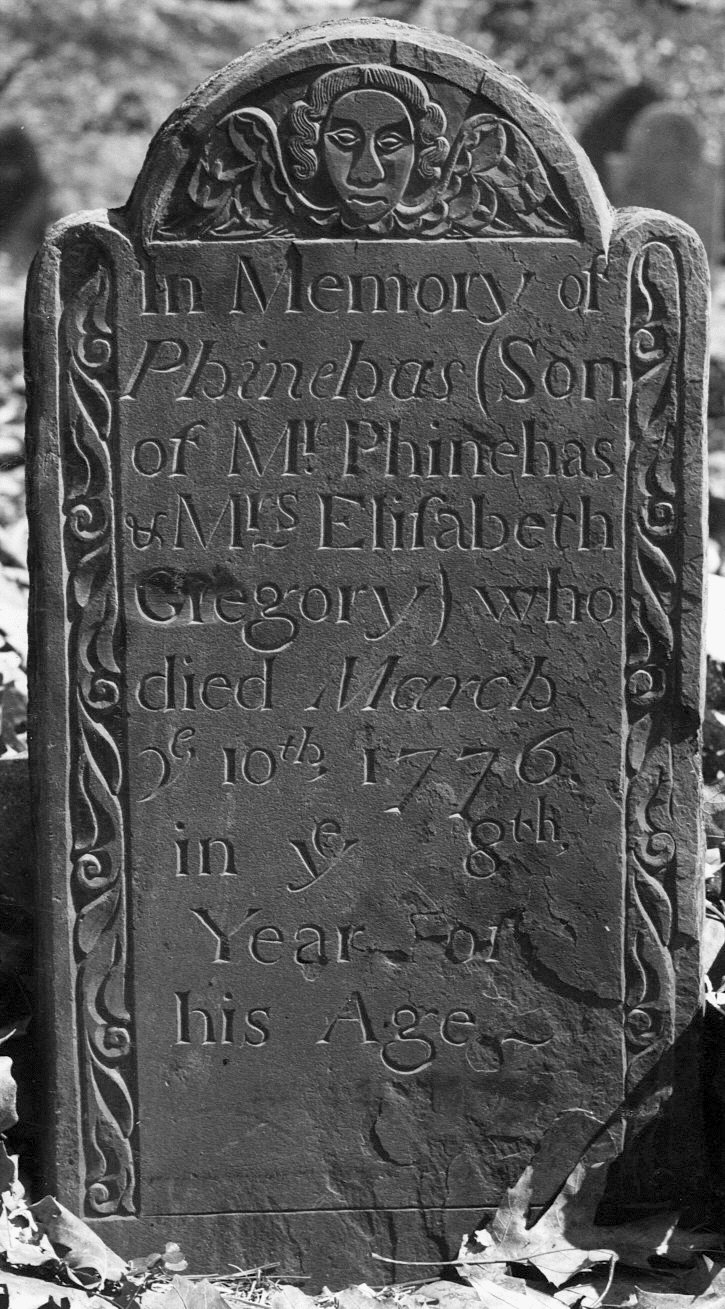 In Memory of
Phinehas (Son
of Mr. Phinehas
& Mrs Eliſabeth
Gregory) who
died March
ye 10th. 1776
in ye 8th.
Year of
his Age